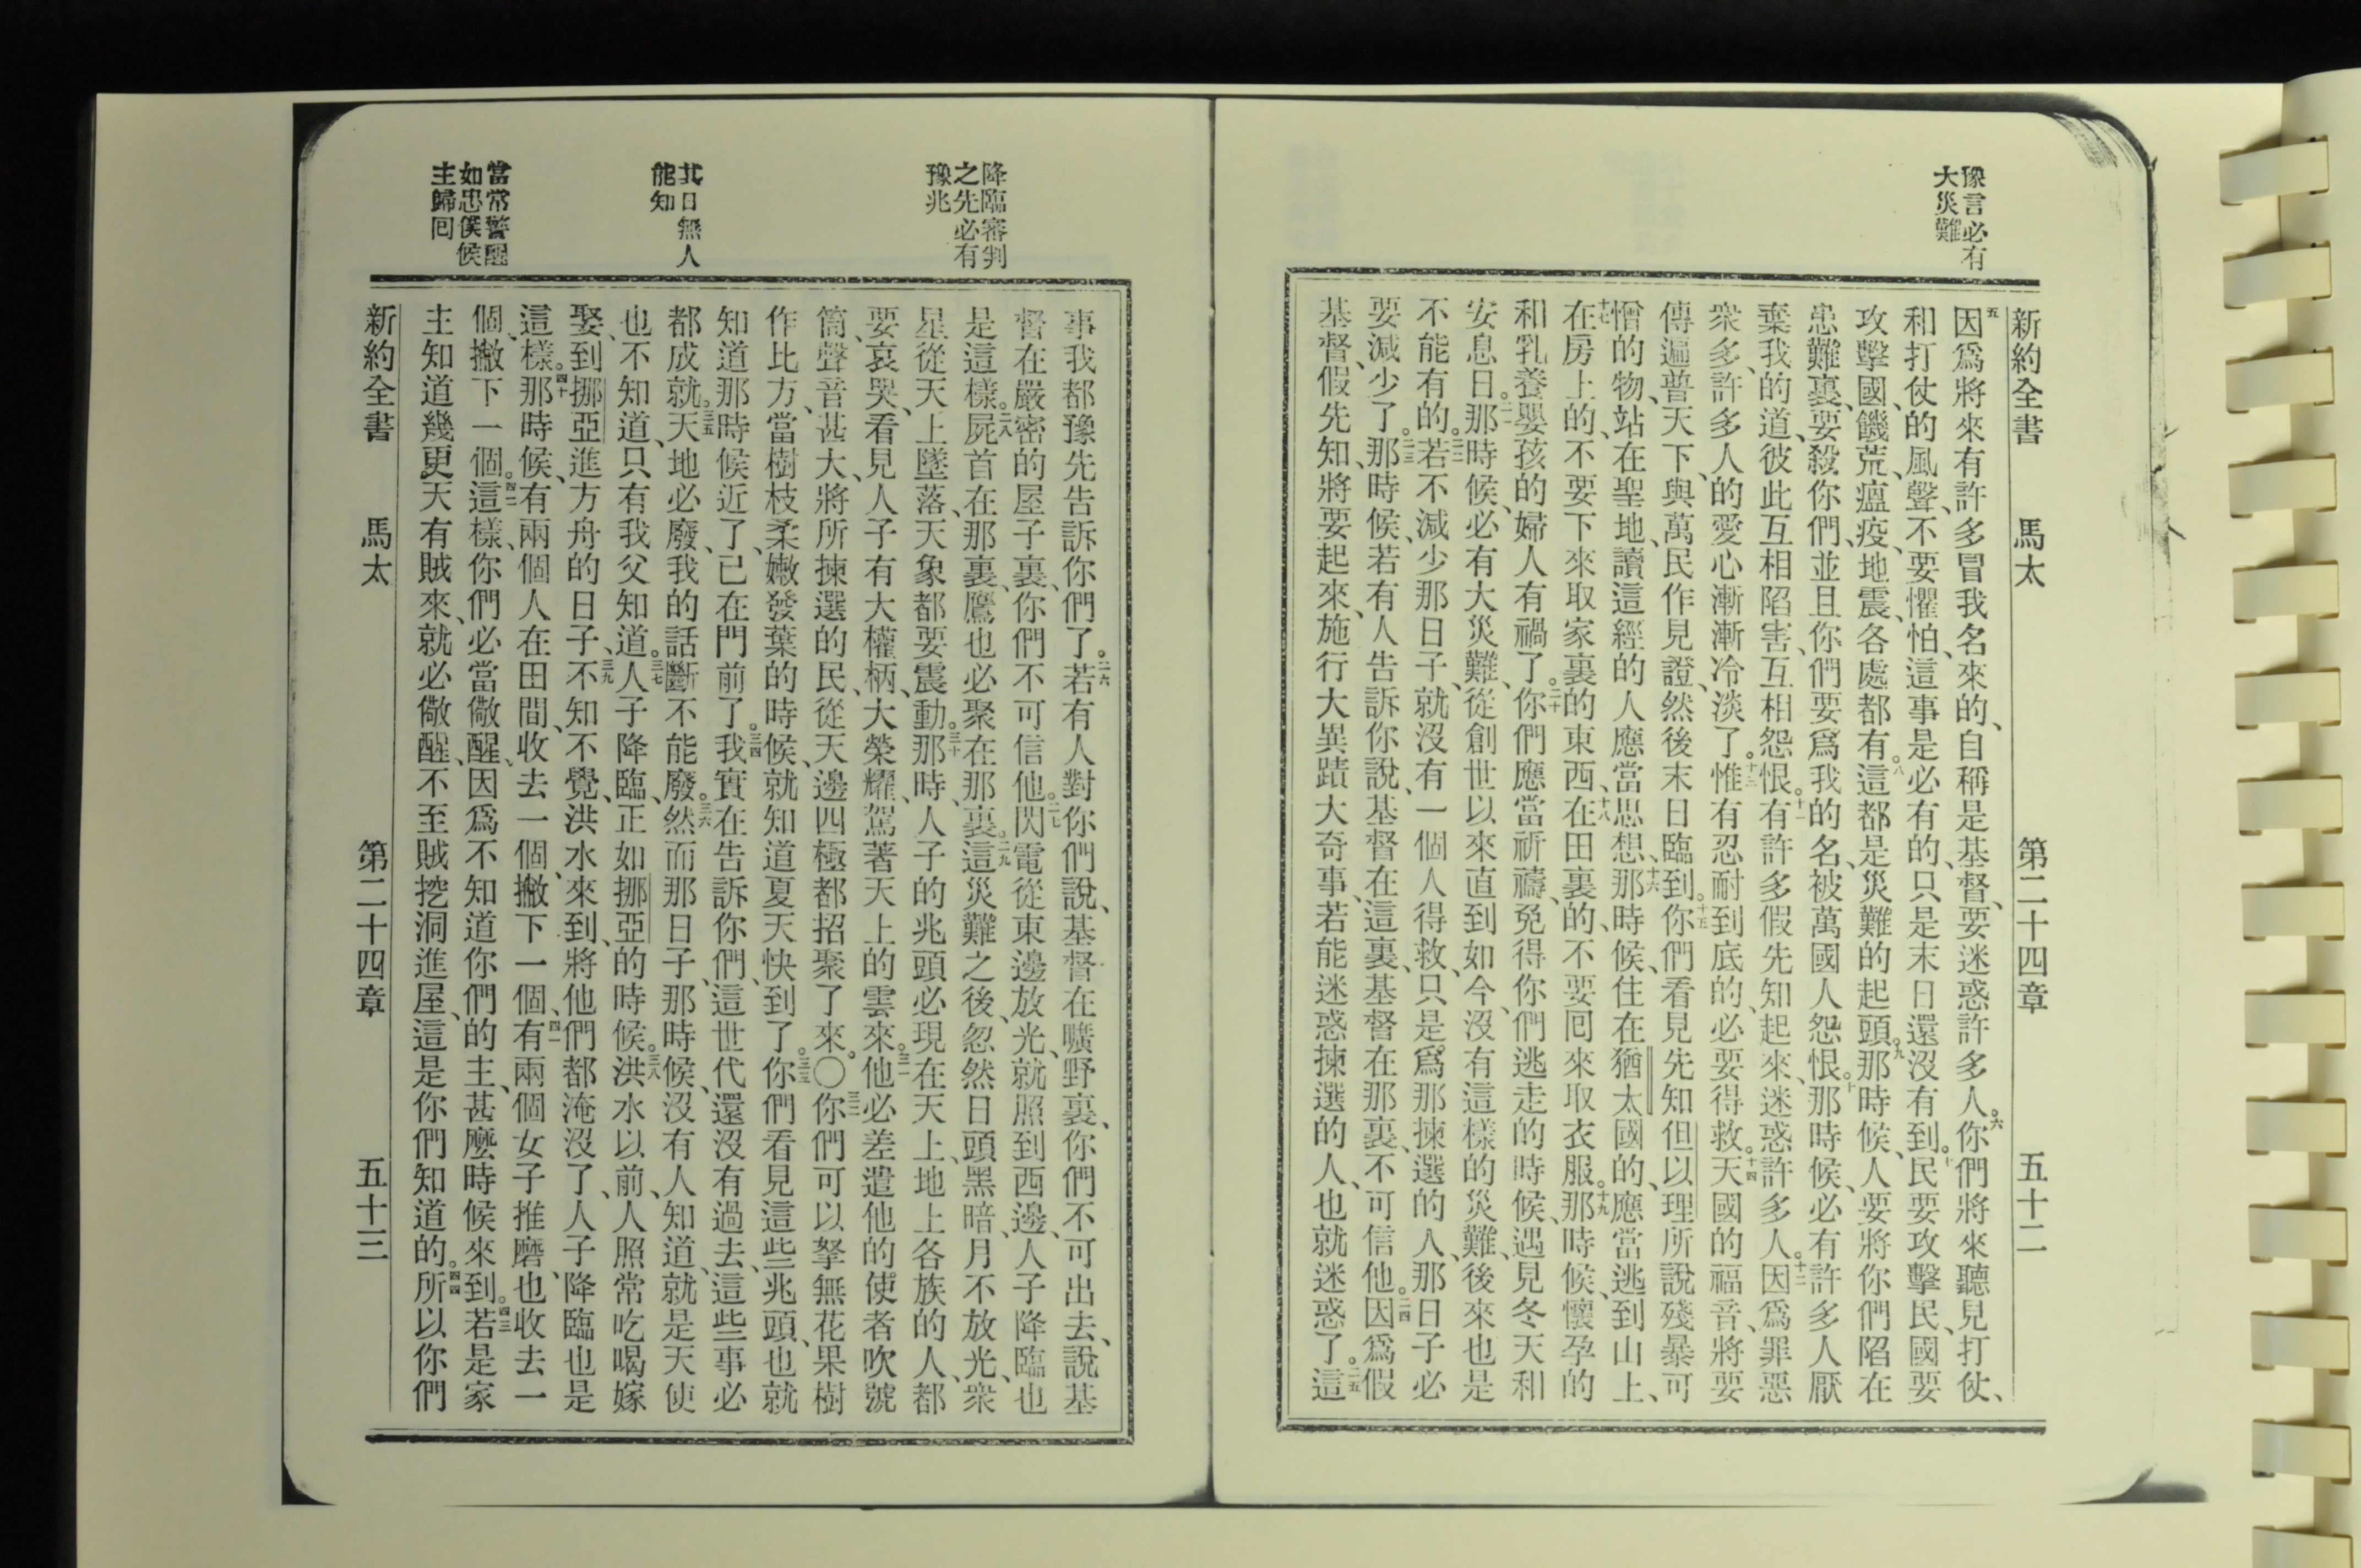 豫言必有
大災難
新約全書 馬太 第二十四章 五十二
五因爲將來有許多冒我名來的、自稱是基督、要迷惑許多人。六你們將來聽見打仗、
和打仗的風聲、不要懼怕、這事是必有的、只是末日還沒有到。七民要攻擊民、國要
攻擊國、饑荒、瘟疫、地震、各處都有。八這都是災難的起頭。九那時候、人要將你們陷在
患難裏、要殺你們、並且你們要爲我的名、被萬國人怨恨。十那時候、必有許多人厭
棄我的道、彼此互相陷害、互相怨恨。十一有許多假先知起來、迷惑許多人。十二因爲罪惡
衆多、許多人的愛心漸漸冷淡了。十三惟有忍耐到底的、必要得救。十四天國的福音、將要
傳遍普天下、與萬民作見證、然後末日臨到。十五你們看見先知但以理所說殘暴可
憎的物、站在聖地、讀這經的人應當思想、十六那時候、住在猶太國的、應當逃到山上、
十七在房上的、不要下來取家裏的東西、十八在田裏的、不要回來取衣服。十九那時候、懷孕的
和乳養嬰孩的婦人有禍了。二十你們應當祈禱、免得你們逃走的時候、遇見冬天和
安息日。二一那時候、必有大災難、從創世以來直到如今、沒有這樣的災難、後來也是
不能有的。二二若不減少那日子、就沒有一個人得救、只是爲那揀選的人、那日子必
要減少了。二三那時候、若有人告訴你說、基督在這裏、基督在那裏、不可信他。二四因爲假
基督、假先知、將要起來、施行大異蹟大奇事、若能迷惑揀選的人、也就迷惑了。二五這
降臨審判
之先必有
豫兆
其日無人
能知
當常警醒
如忠僕候
主歸回
事我都豫先告訴你們了。二六若有人對你們說、基督在曠野裏、你們不可出去、說基
督在嚴密的屋子裏、你們不可信他。二七閃電從東邊放光、就照到西邊、人子降臨也
是這樣。二八屍首在那裏、鷹也必聚在那裏。二九這災難之後、忽然日頭黑暗、月不放光、衆
星從天上墜落、天象都要震動。三十那時、人子的兆頭必現在天上、地上各族的人、都
要哀哭、看見人子有大權柄、大榮耀、駕著天上的雲來。三一他必差遣他的使者吹號
筒、聲音甚大、將所揀選的民、從天邊四極都招聚了來。〇三二你們可以拏無花果樹
作比方、當樹枝柔嫩發葉的時候、就知道夏天快到了。三三你們看見這些兆頭、也就
知道那時候近了、已在門前了。三四我實在告訴你們、這世代還沒有過去、這些事必
都成就。三五天地必廢、我的話斷不能廢。三六然而那日子、那時候、沒有人知道、就是天使
也不知道、只有我父知道。三七人子降臨、正如挪亞的時候。三八洪水以前、人照常吃喝嫁
娶、到挪亞進方舟的日子、三九不知不覺、洪水來到、將他們都淹沒了、人子降臨也是
這樣。四十那時候、有兩個人在田間、收去一個、撇下一個、四一有兩個女子推磨、也收去一
個、撇下一個。四二這樣、你們必當儆醒、因爲不知道你們的主、甚麼時候來到。四三若是家
主知道幾更天有賊來、就必儆醒、不至賊挖洞進屋、這是你們知道的。四四所以你們
新約全書 馬太 第二十四章 五十三